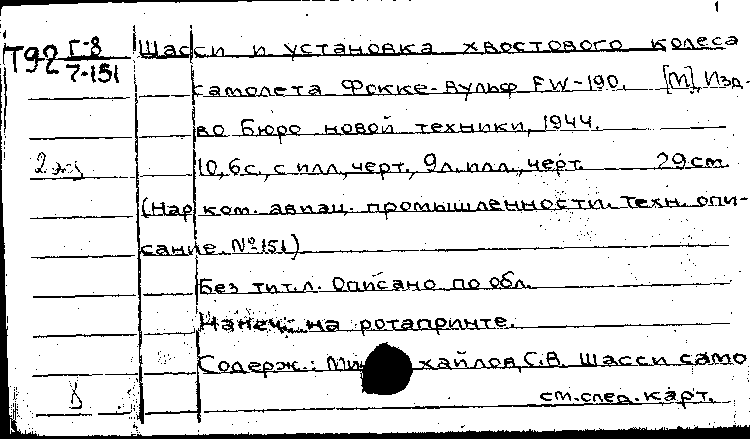 1
Т92 Г-8 Шасси и установка хвостового колеса
7-151
самолета Фокке-Вульф FW-190. [М], Изд-
во Бюро новой техники, 1944.
2 экз 10,6с., с илл., черт., 9л. илл., черт. 29см.
(Нар ком. авиац. промышленности. Техн. опи-
сание. №151)
Без тит.л. Описано по обл.
Напеч. на ротапринте.
Содерж.: Михайлов, С.В. Шасси само
8 см.след.карт.